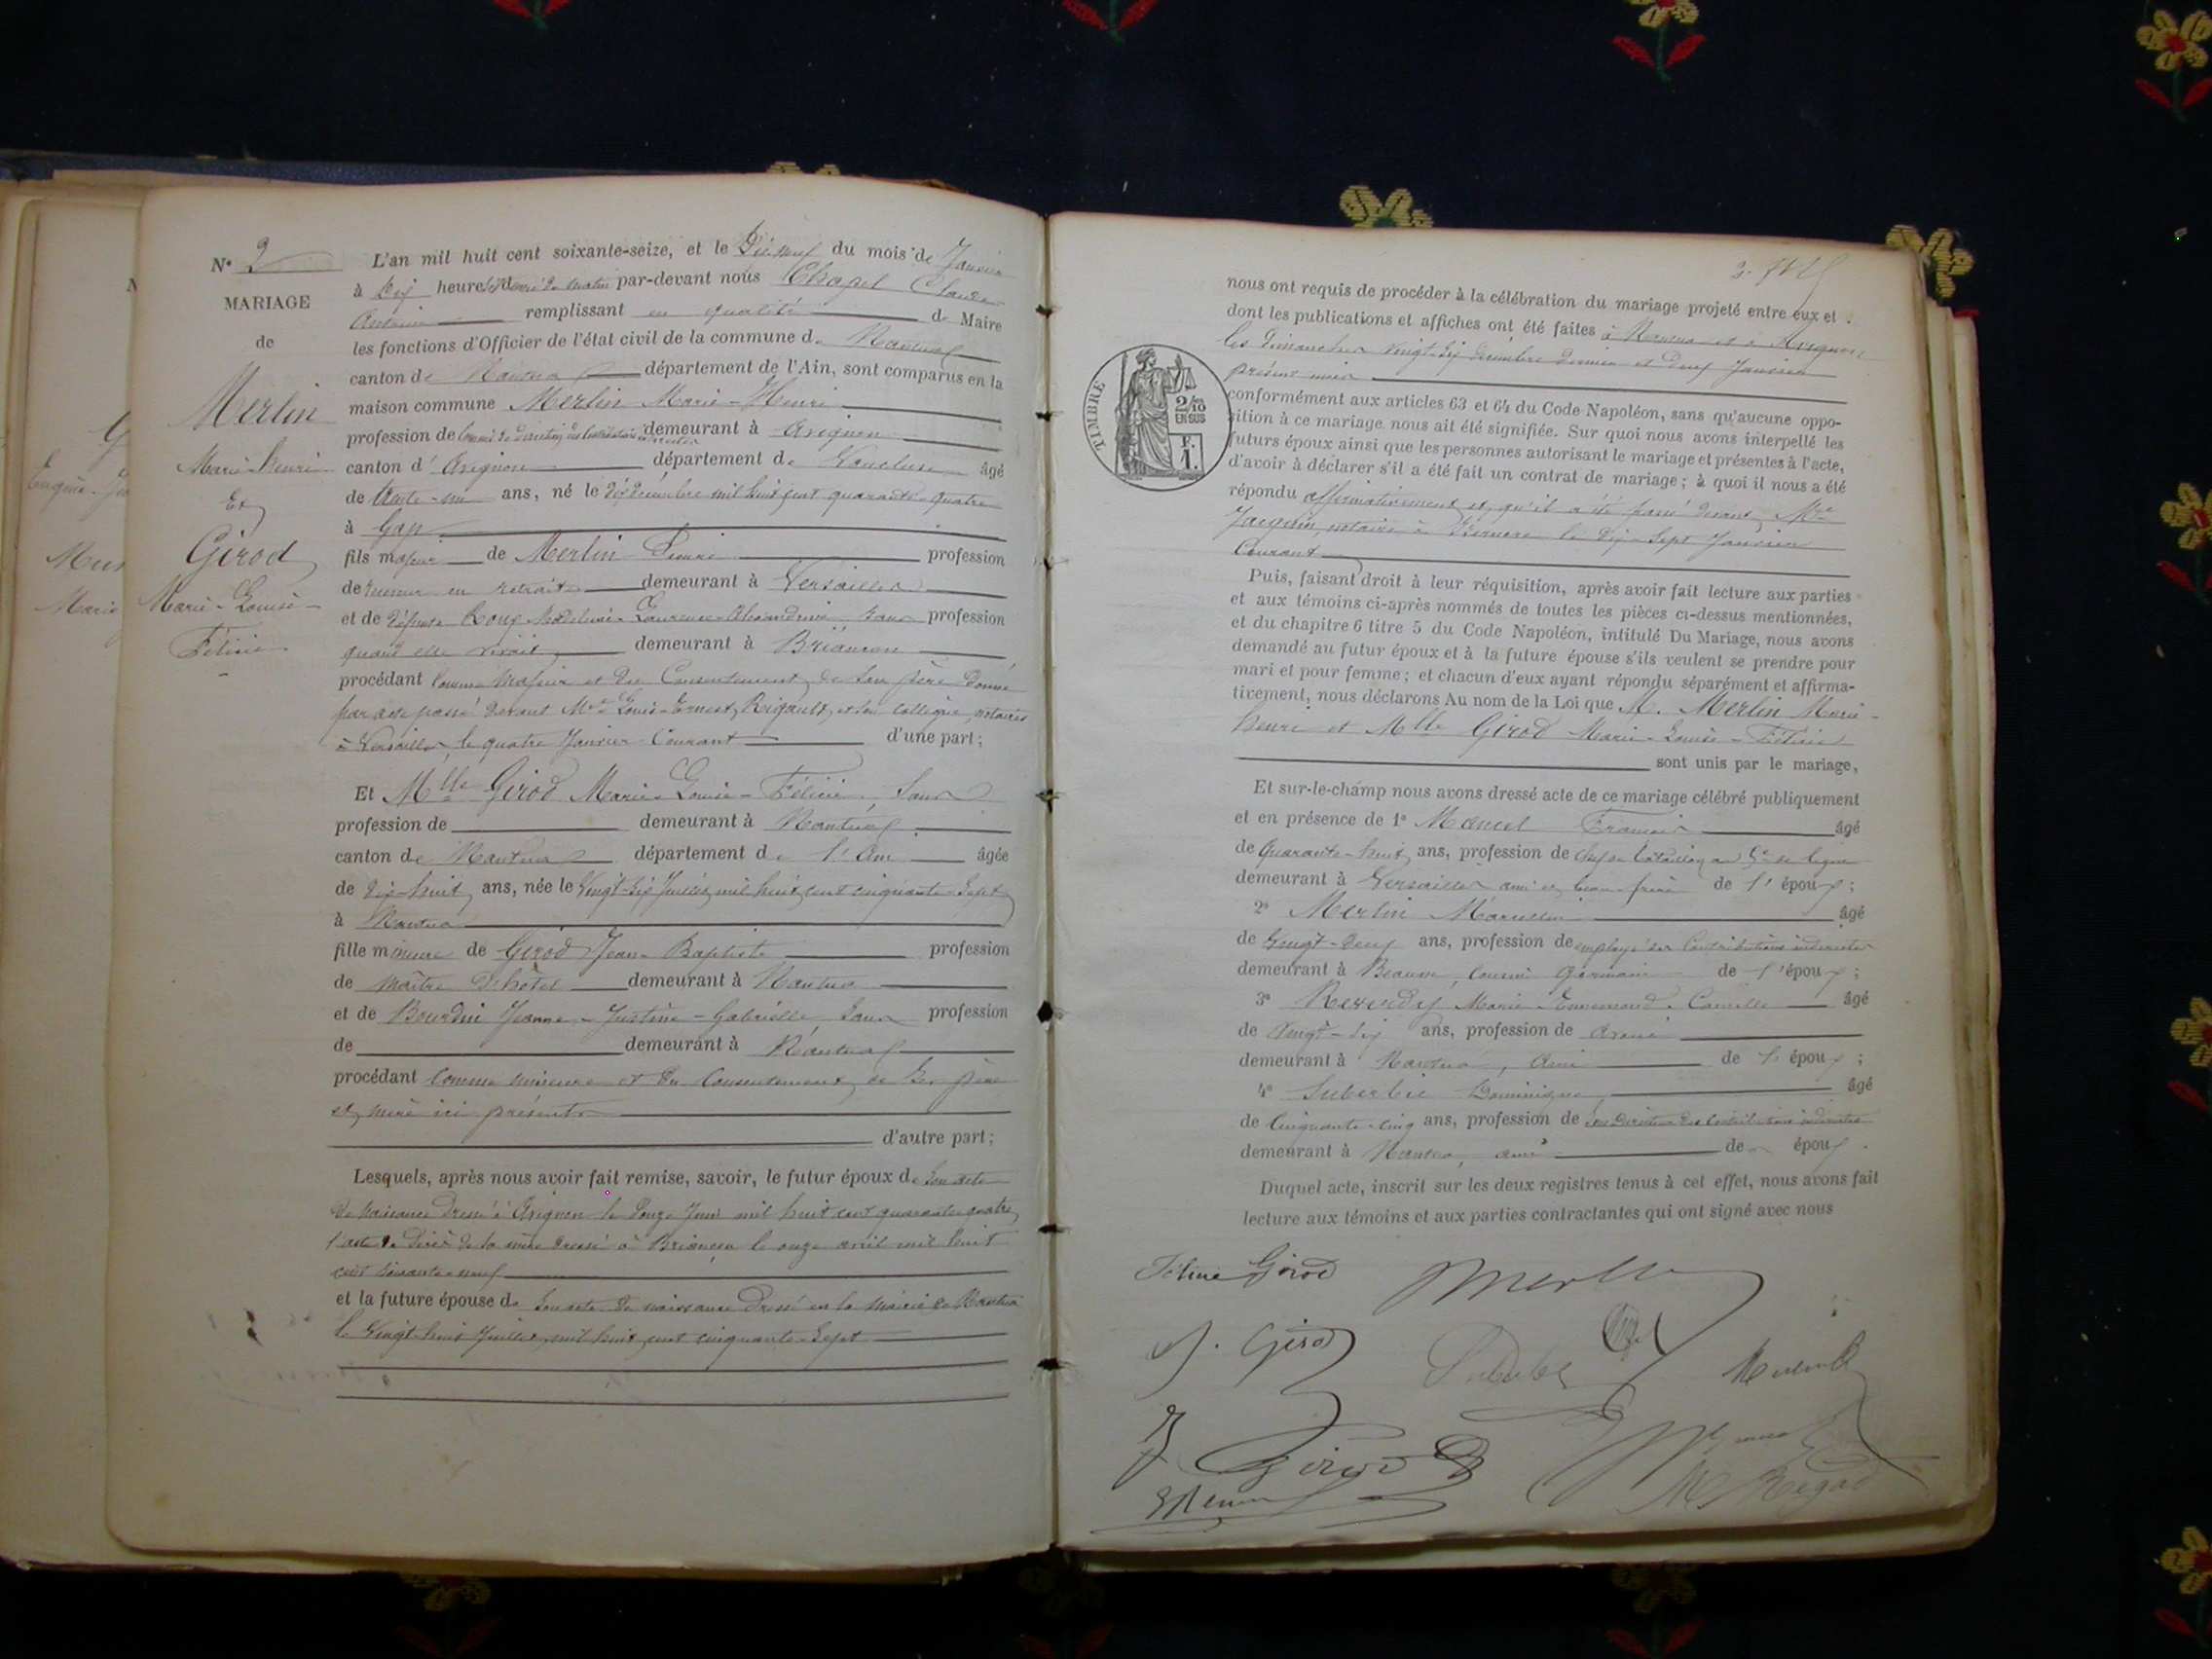 N° 2
MARIAGE
de
Merlin
Marie-Henri
Et
Girod
Marie-Louise-
Félicie
L'an mil huit cent soixante-seize, et le Dix neuf du mois de Janvier
à Dix heures et demie du matin par-devant nous Chapel Claude
Antoine remplissant en qualité de Maire
les fonctions d'Officier de l'état civil de la commune de Nantua
canton de Nantua département de l'Ain, sont comparus en la
maison commune Merlin Marie-Henri
profession de Commis de direction des Contributions indirectes demeurant à Avignon
canton d'Avignon département de Vaucluse âgé
de trente-un ans, né le dix décembre mil huit cent quarante-quatre
à Gap
fils majeur de Merlin profession
de en retraite demeurant à Versailles
et de défunte Roux Madeleine-Laurence-Alexandrine sans profession
quand elle vivait, demeurant à Briançon
procédant comme Majeur et du Consentement de Son père donné
par acte passé devant Mtre Louis-Ernest Rigault, et son collègue, notaires
à Versailles, le quatre Janvier Courant d'une part;
Et Mlle Girod Marie-Louise-Félicie, Sans
profession de demeurant à Nantua
canton de Nantua département de l'Ain âgée
de dix-huit ans, née le Vingt-six Juillet mil huit cent cinquante-sept
à Nantua
fille mineure de Girod Jean-Baptiste profession
de Maître d'hôtel demeurant à Nantua
et de Bourdin Jeanne-Justine-Gabrielle Sans profession
de demeurant à Nantua
procédant Comme mineure et du Consentement de Ses père
et mère ici présents
d'autre part;
Lesquels, après nous avoir fait remise, savoir, le futur époux de Son acte
de naissance dressé à le Douze mil huit cent quarante-quatre,
l'acte de décès de sa mère dressé à Briançon le onze avril mil huit
cent soixante-neuf
et la future épouse de Son acte de naissance dressé en la Mairie de Nantua
le Vingt-huit Juillet mil huit cent cinquante-sept
nous ont requis de procéder à la célébration du mariage projeté entre eux et
dont les publications et affiches ont été faites à Nantua et à Avignon
les Dimanches Vingt-six décembre dernier et deux Janvier
présent mois
TIMBRE
2/10
EN SUS
F.
1.
conformément aux articles 63 et 64 du Code Napoléon, sans qu'aucune oppo-
sition à ce mariage nous ait été signifiée. Sur quoi nous avons interpellé les
futurs époux ainsi que les personnes autorisant le mariage et présentes à l'acte,
d'avoir à déclarer s'il a été fait un contrat de mariage; à quoi il nous a été
répondu affirmativement et qu'il a été passé devant Mtre
Jacquin, notaire à le dix-Sept Janvier
Courant
Puis, faisant droit à leur réquisition, après avoir fait lecture aux parties
et aux témoins ci-après nommés de toutes les pièces ci-dessus mentionnées,
et du chapitre 6 titre 5 du Code Napoléon, intitulé Du Mariage, nous avons
demandé au futur époux et à la future épouse s'ils veulent se prendre pour
mari et pour femme; et chacun d'eux ayant répondu séparément et affirma-
tivement, nous déclarons Au nom de la Loi que M. Merlin Marie-
Henri et Mlle Girod Marie-Louise-Félicie
sont unis par le mariage,
Et sur-le-champ nous avons dressé acte de ce mariage célébré publiquement
et en présence de 1° Mancel François âgé
de Quarante-huit ans, profession de chef de bataillon au de ligne
demeurant à Versailles ami et beau-frère de l'époux;
2° Merlin Marcellin âgé
de Vingt-deux ans, profession de employé des Contributions indirectes
demeurant à Beaune, cousin Germain de l'époux;
3° Marie-Ennemond-Camille âgé
de Vingt-six ans, profession de avoué
demeurant à Nantua, Ami de l'époux;
4° Suberbie Dominique âgé
de Cinquante-cinq ans, profession de sous Directeur des Contributions indirectes
demeurant à Nantua, ami de époux.
Duquel acte, inscrit sur les deux registres tenus à cet effet, nous avons fait
lecture aux témoins et aux parties contractantes qui ont signé avec nous
Félicie Girod Merlin
J. Girod
Girod